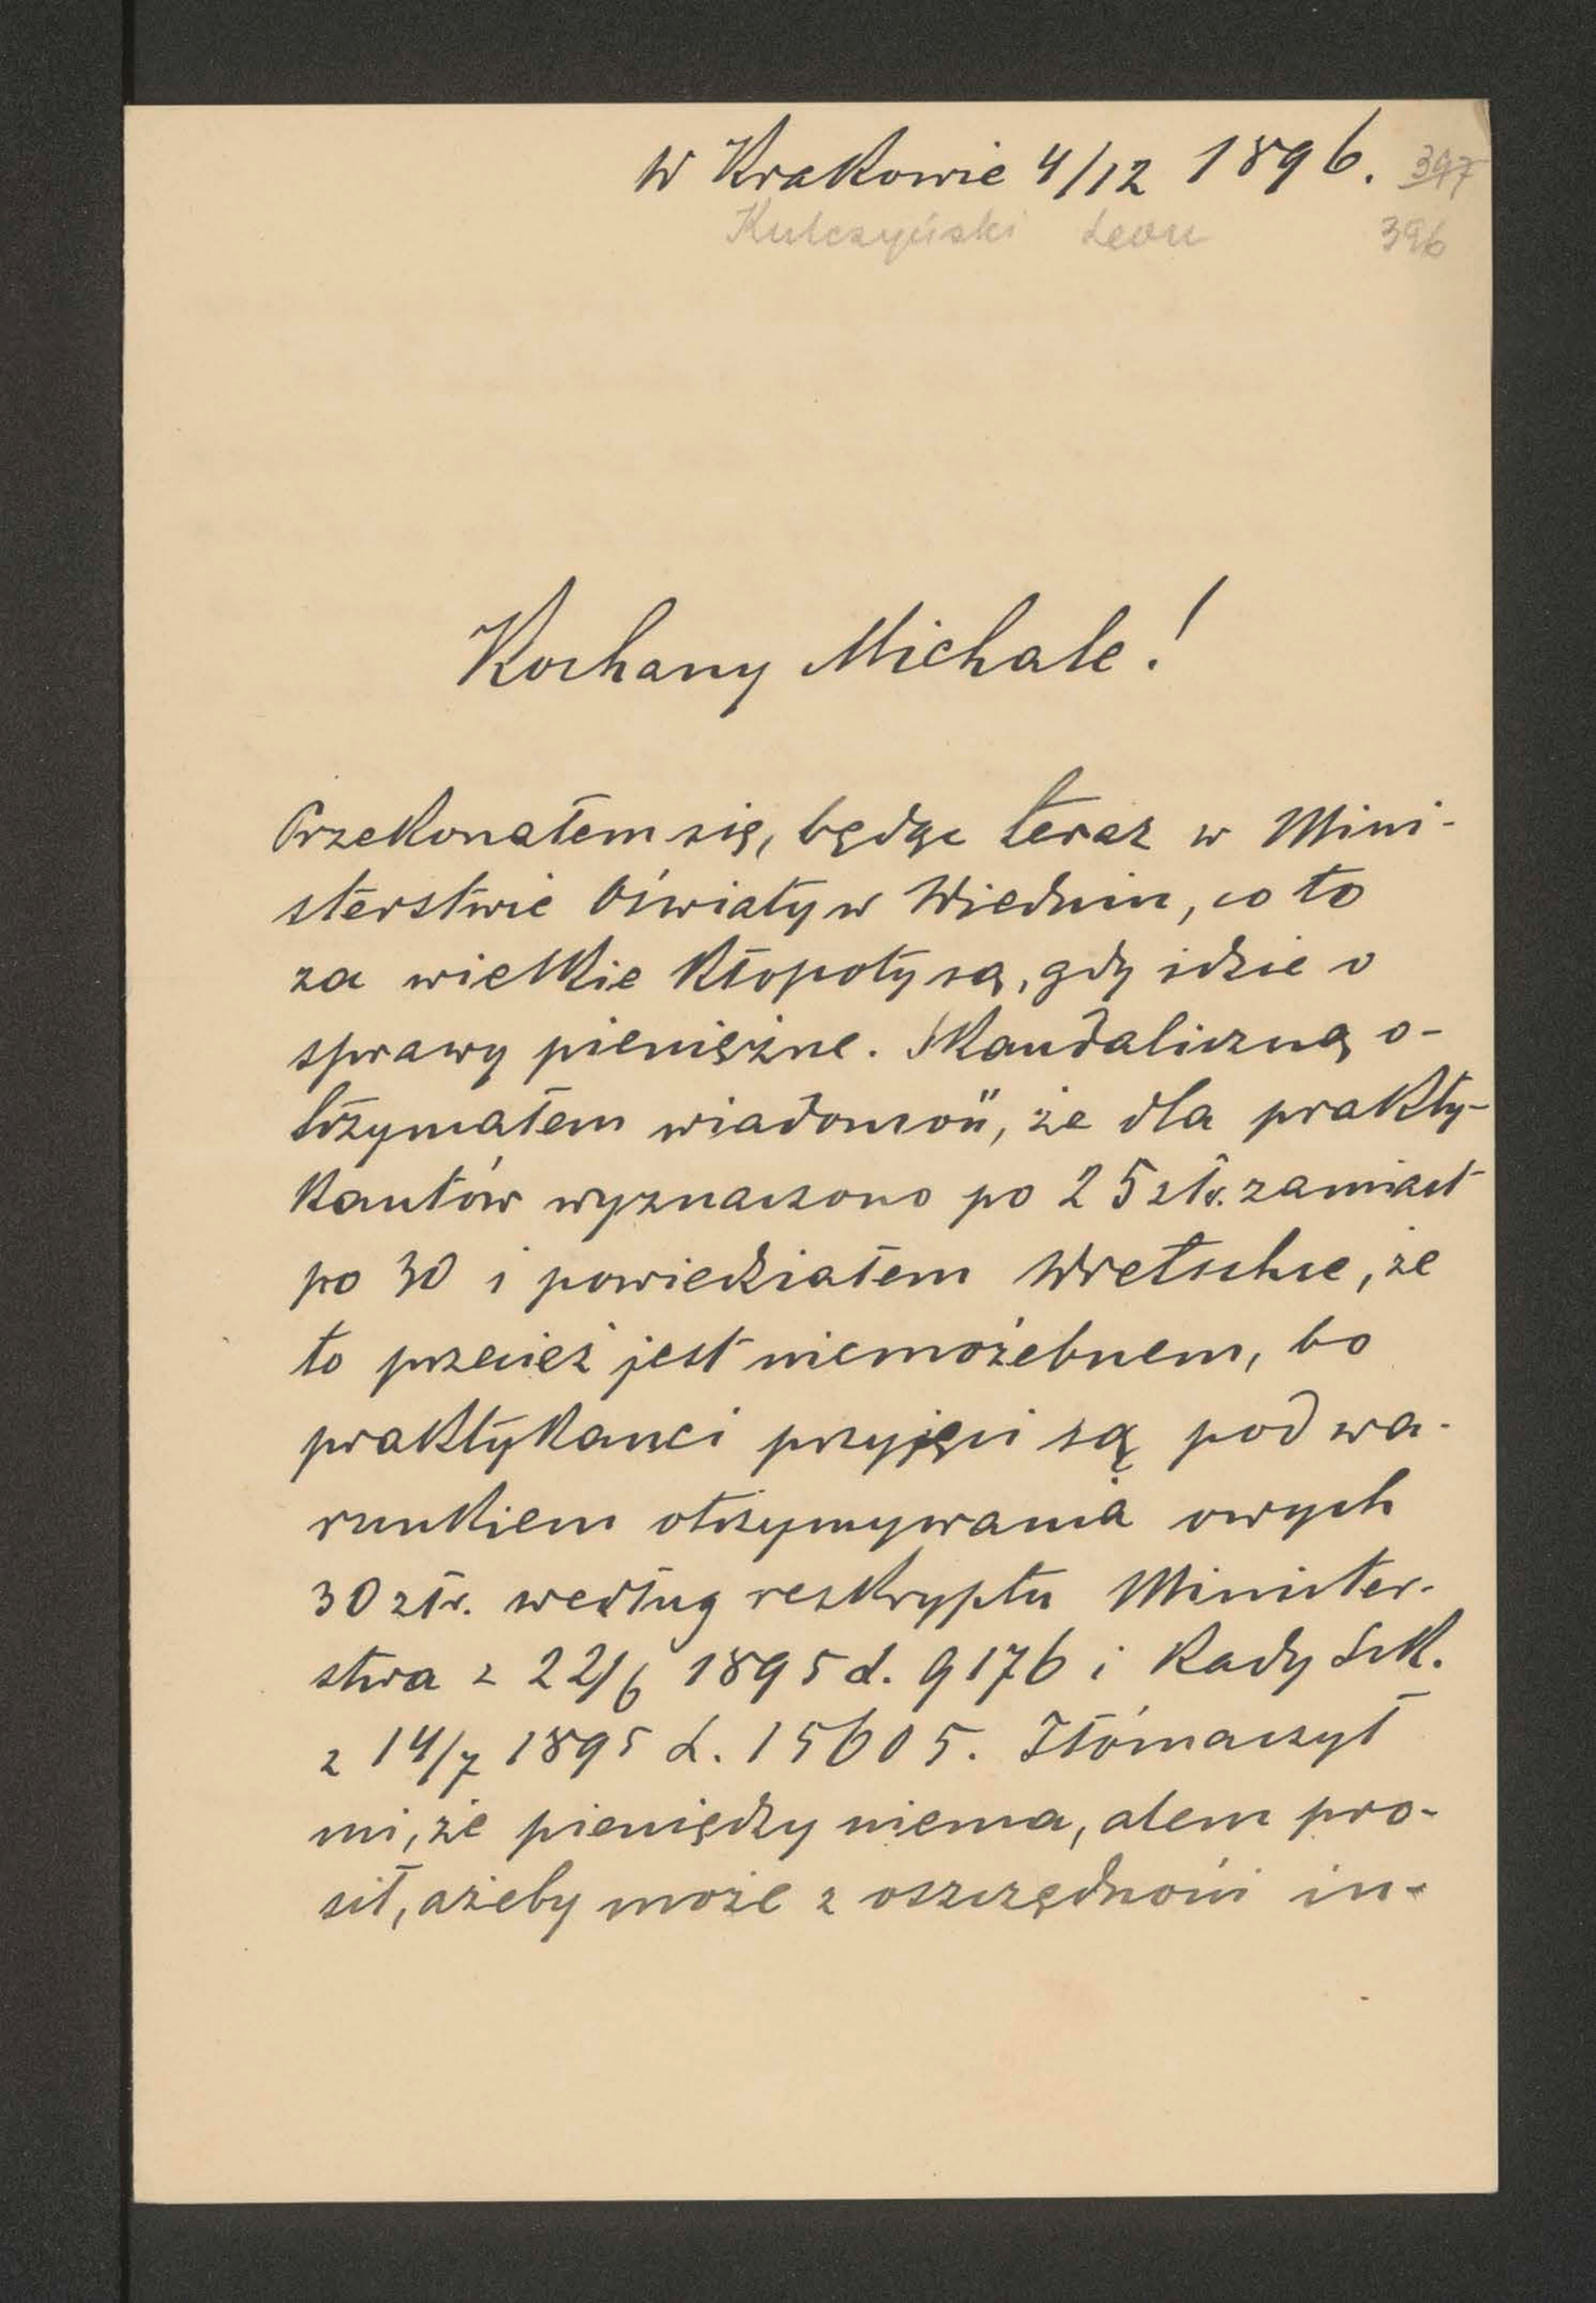 W Krakowie 4/12 1896. 397
Kulczyński Leon 396
Kochany Michale!
Przekonałem się, będąc teraz w Mini-
sterstwie Oświaty w Wiedniu, co to
za wielkie kłopoty są, gdy idzie o
sprawy pieniężne. Skandaliczną o-
trzymałem wiadomość, że dla prakty-
kantów wyznaczono po 25 złr. zamiast
po 30 i powiedziałem Wretschce, że
to przecież jest niemożebnem, bo
praktykanci przyjęci są pod wa-
runkiem otrzymywania owych
30 złr. według reskryptu Minister-
stwa z 22/6 1895 L. 9176 i Rady Szk.
z 14/7 1895 L. 15605. Tłómaczył
mi, że pieniędzy niema, alem pro-
sił, ażeby może z oszczędności in-